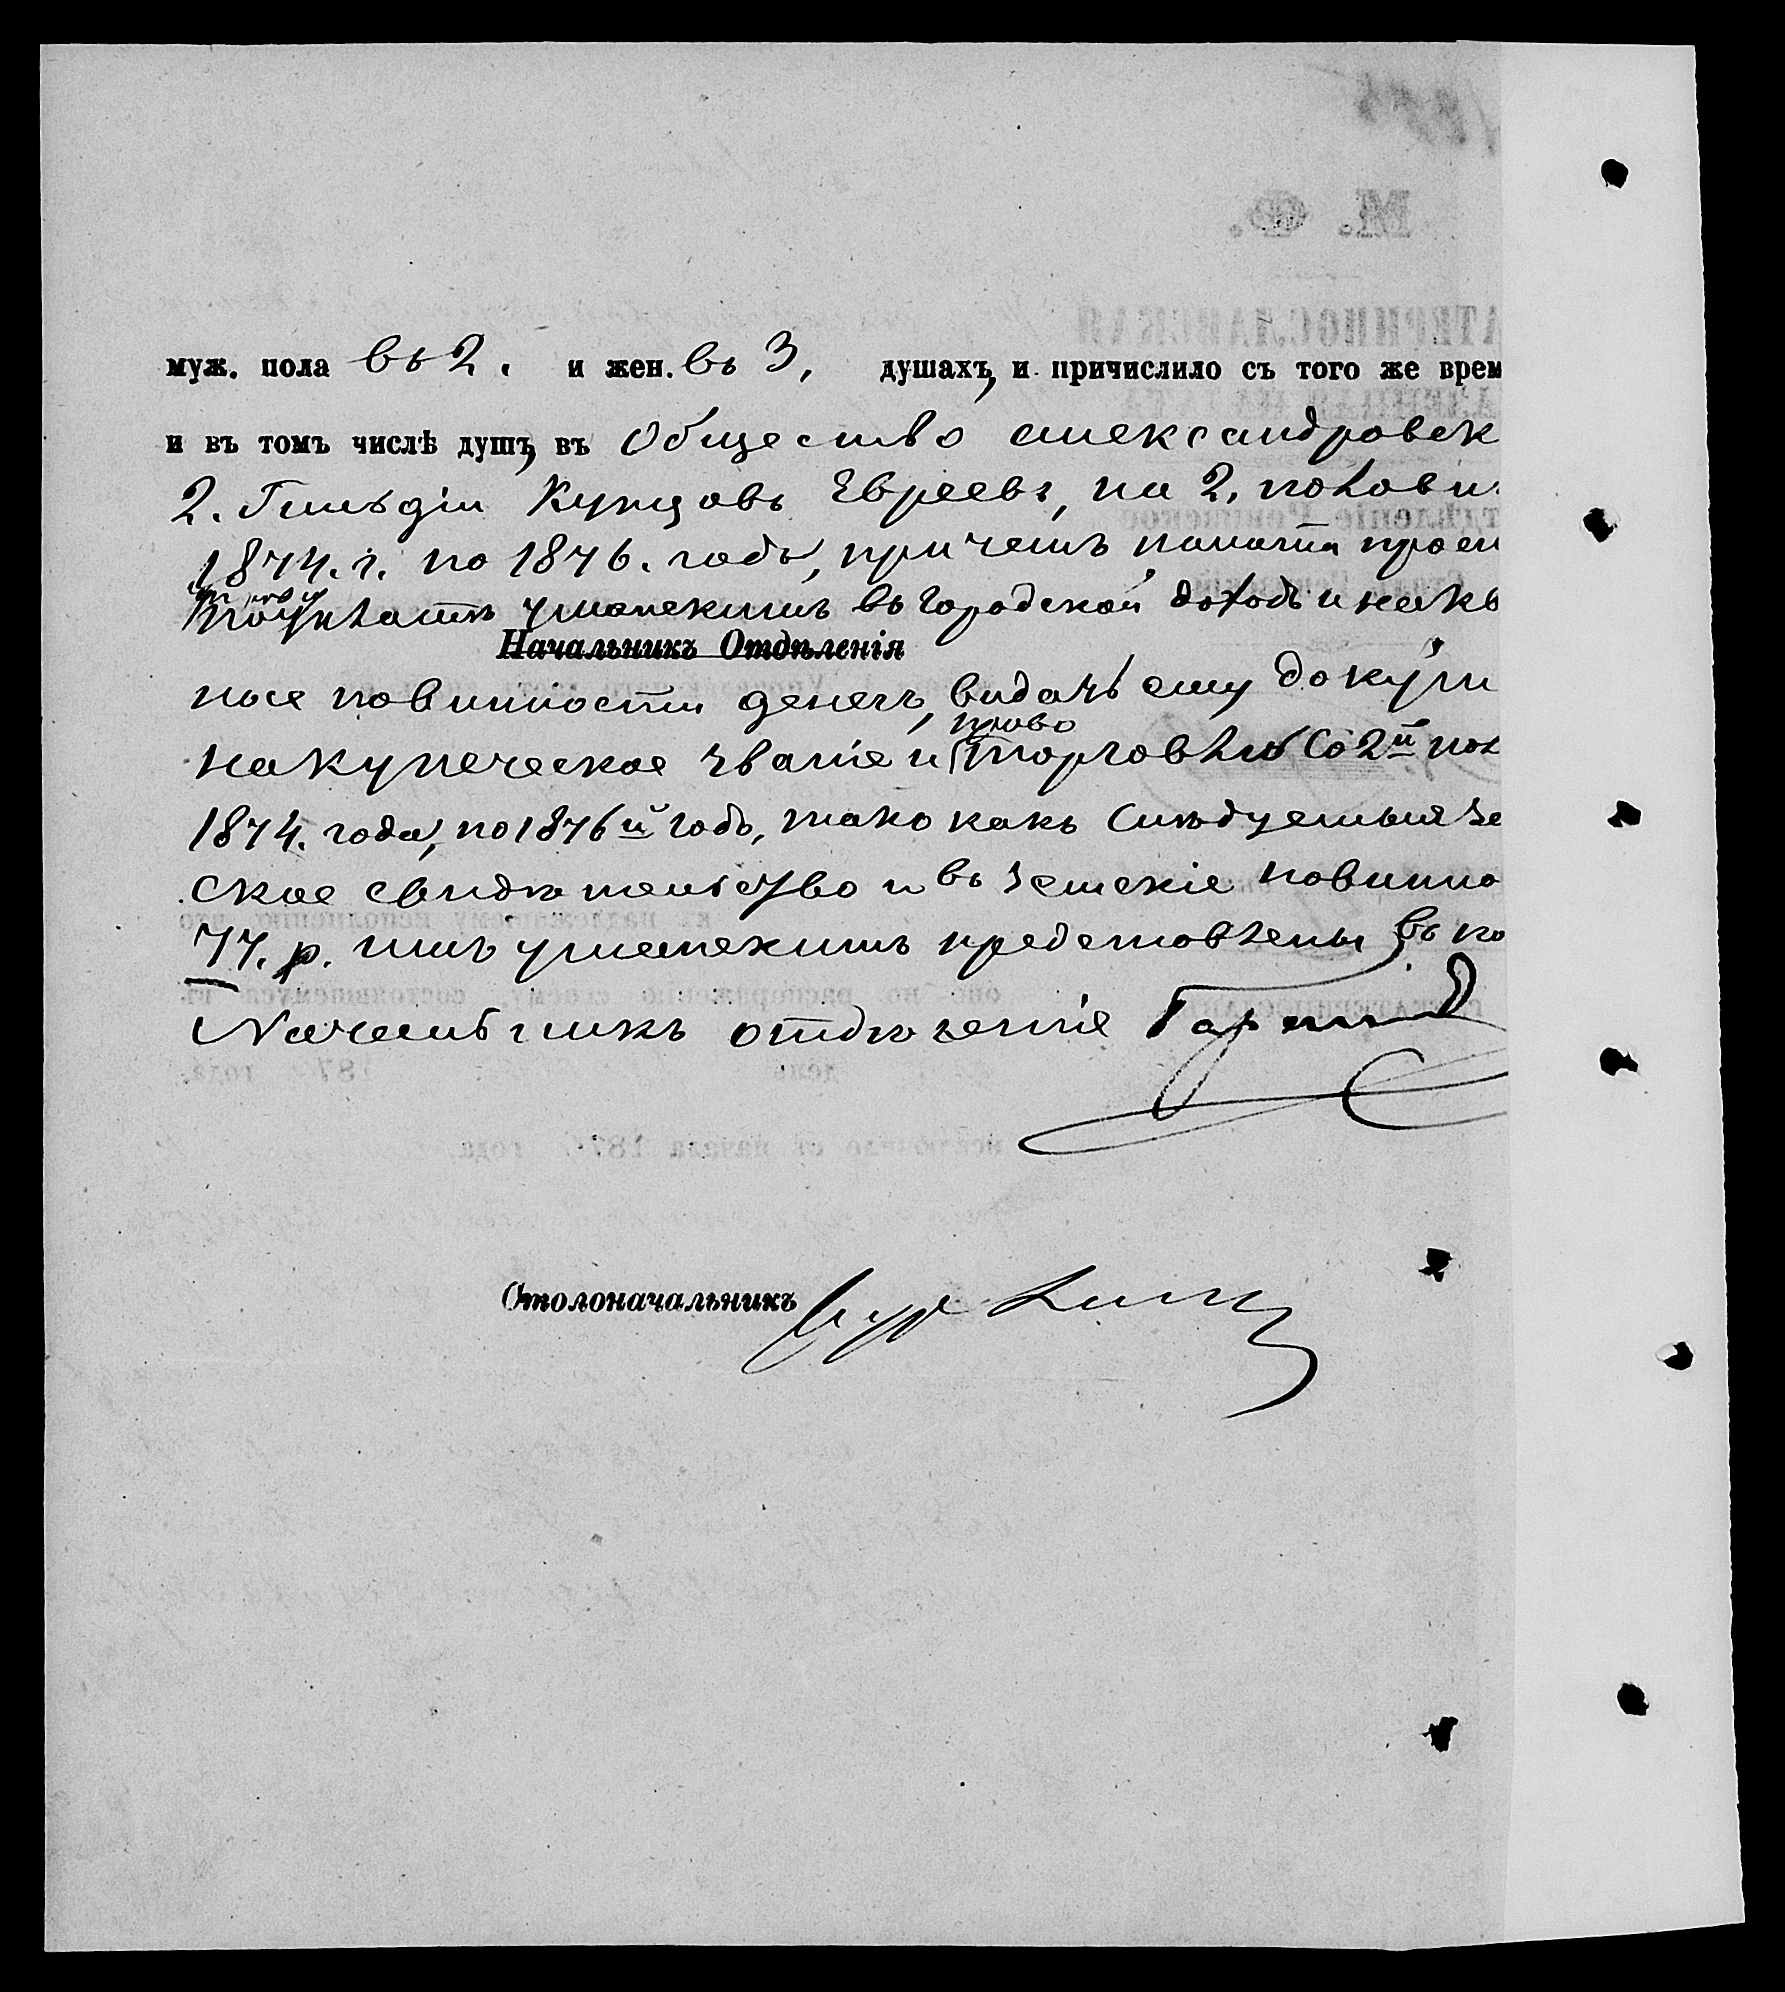 муж. пола въ 2. и жен. въ 3, душахъ, и причислило съ того же врем
и въ томъ числѣ душъ, въ Общество Александровск
2. Гильдіи Купцовъ Евреевъ, на 2. полови
1874. г. по 1876. годъ, при чемъ палата проси
въ городской доходъ и на
Начальникъ Отдѣленія
ные повинности денегъ, видать ему докум
на купеческое званіе и право торговлю Со 2й пол
1874. года, по 1876й годъ, такъ какъ слѣдуемыя за
ское свидѣтельство и въ земскіе повинно
77. р. имъ представлены въ ка
Начальникъ отдѣленія
Столоначальникъ